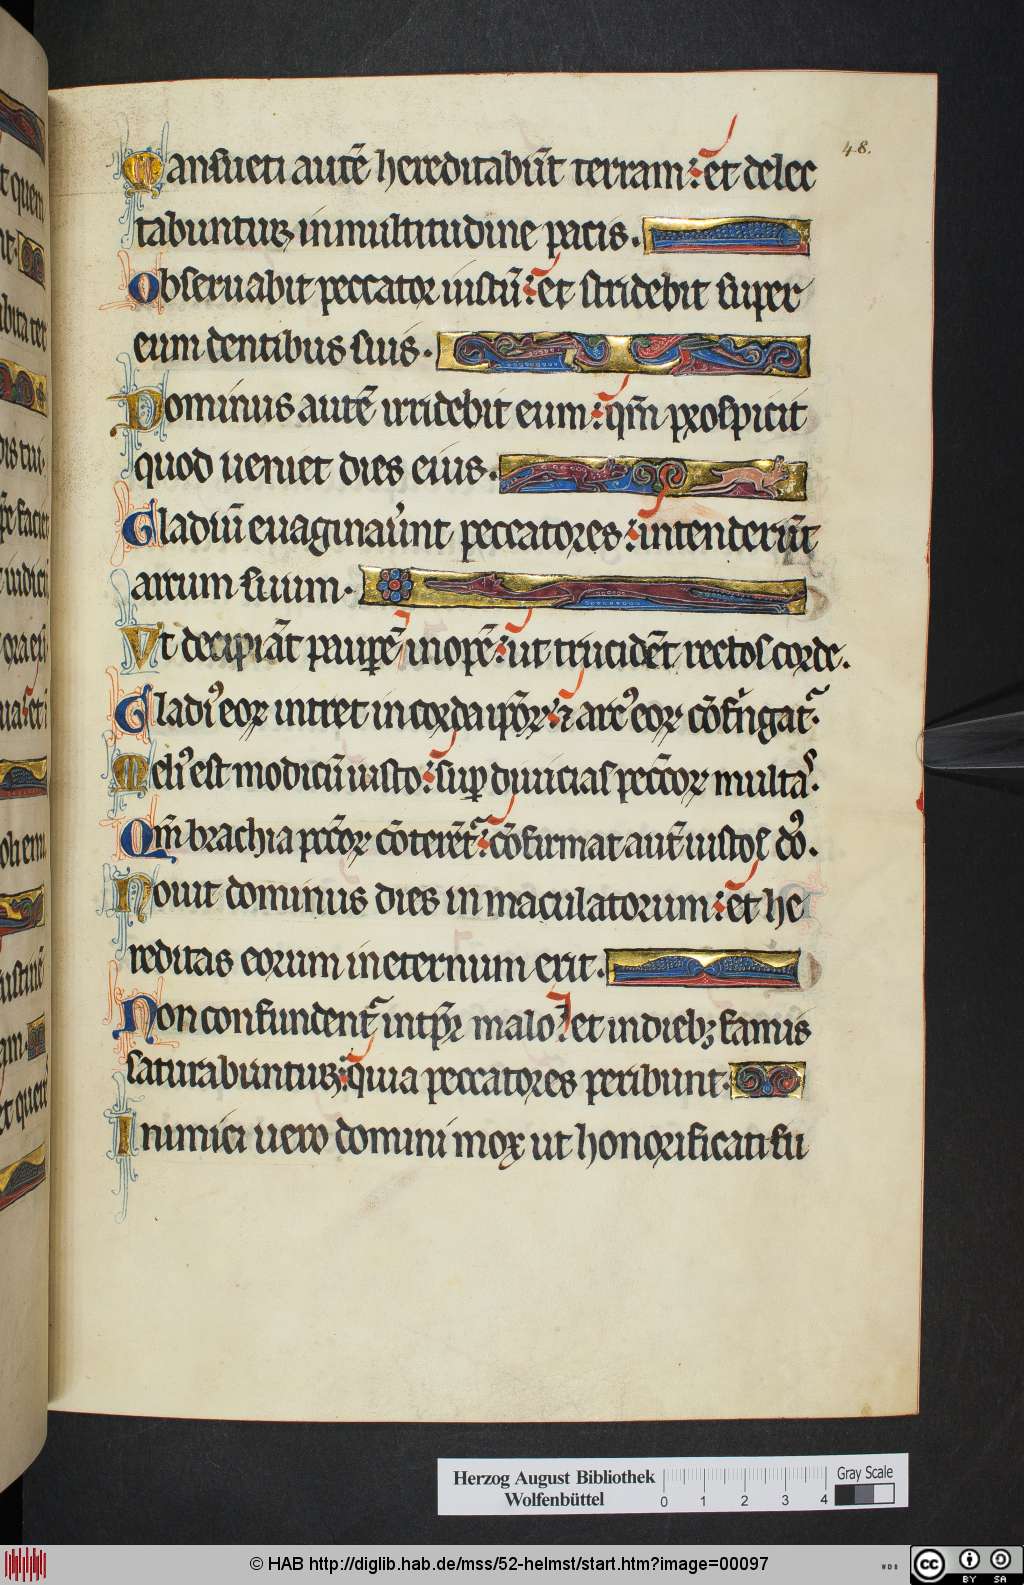 48.
Mansueti autē hereditabūt terram : et delec
tabuntur, in multitudine pacis.
Obseruabit peccator iustū : et stridebit super
eum dentibus suis.
Dominus autē irridebit eum : qm̄ prospicit
quod ueniet dies eius.
Gladiū euaginauerūnt peccatores : intenderūt
arcum suum.
Vt decipiāt pauperē inopē : ut trucidēt rectos corde.
Gladiꝰ eoꝝ intret in corda ipsoꝝ : ⁊ arcꝰ eoꝝ cōfringatᷣ.
Meliꝰ est modicū iusto : suꝑ diuicias pecc̄oꝝ multas.
Qm̄ brachia pcc̄oꝝ cōterēt᷑ : cōfirmat aut̄ iustos dō.
Nouit dominus dies in maculatorum : et he
reditas eorum in eternum erit.
Non confundent᷑ in tp̄r malo : et in diebꝫ famis
saturabuntur : quia peccatores peribunt.
Inimici uero domini mox ut honorificati fu
Herzog August Bibliothek
Wolfenbüttel
0 1 2 3 4
Gray Scale
© HAB http://diglib.hab.de/mss/52-helmst/start.htm?image=00097
WDB
cc BY SA